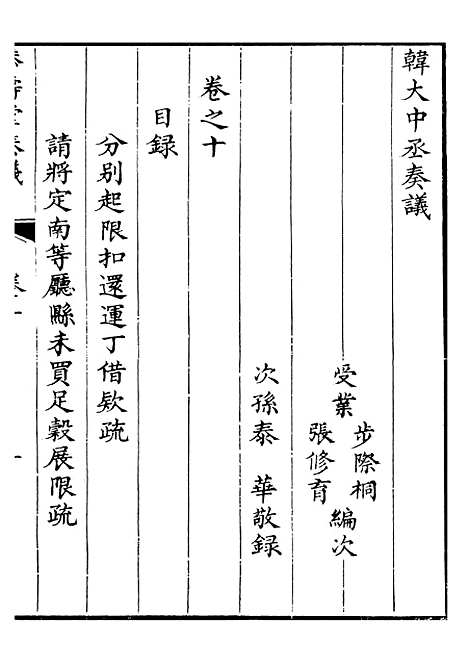 韓大中丞奏議
受業
步際桐
張修育
編次
次孫泰　華敬録
卷之十
目録
分别起限扣還運丁借欵疏
請將定南等廳縣未買足穀展限疏
奏議